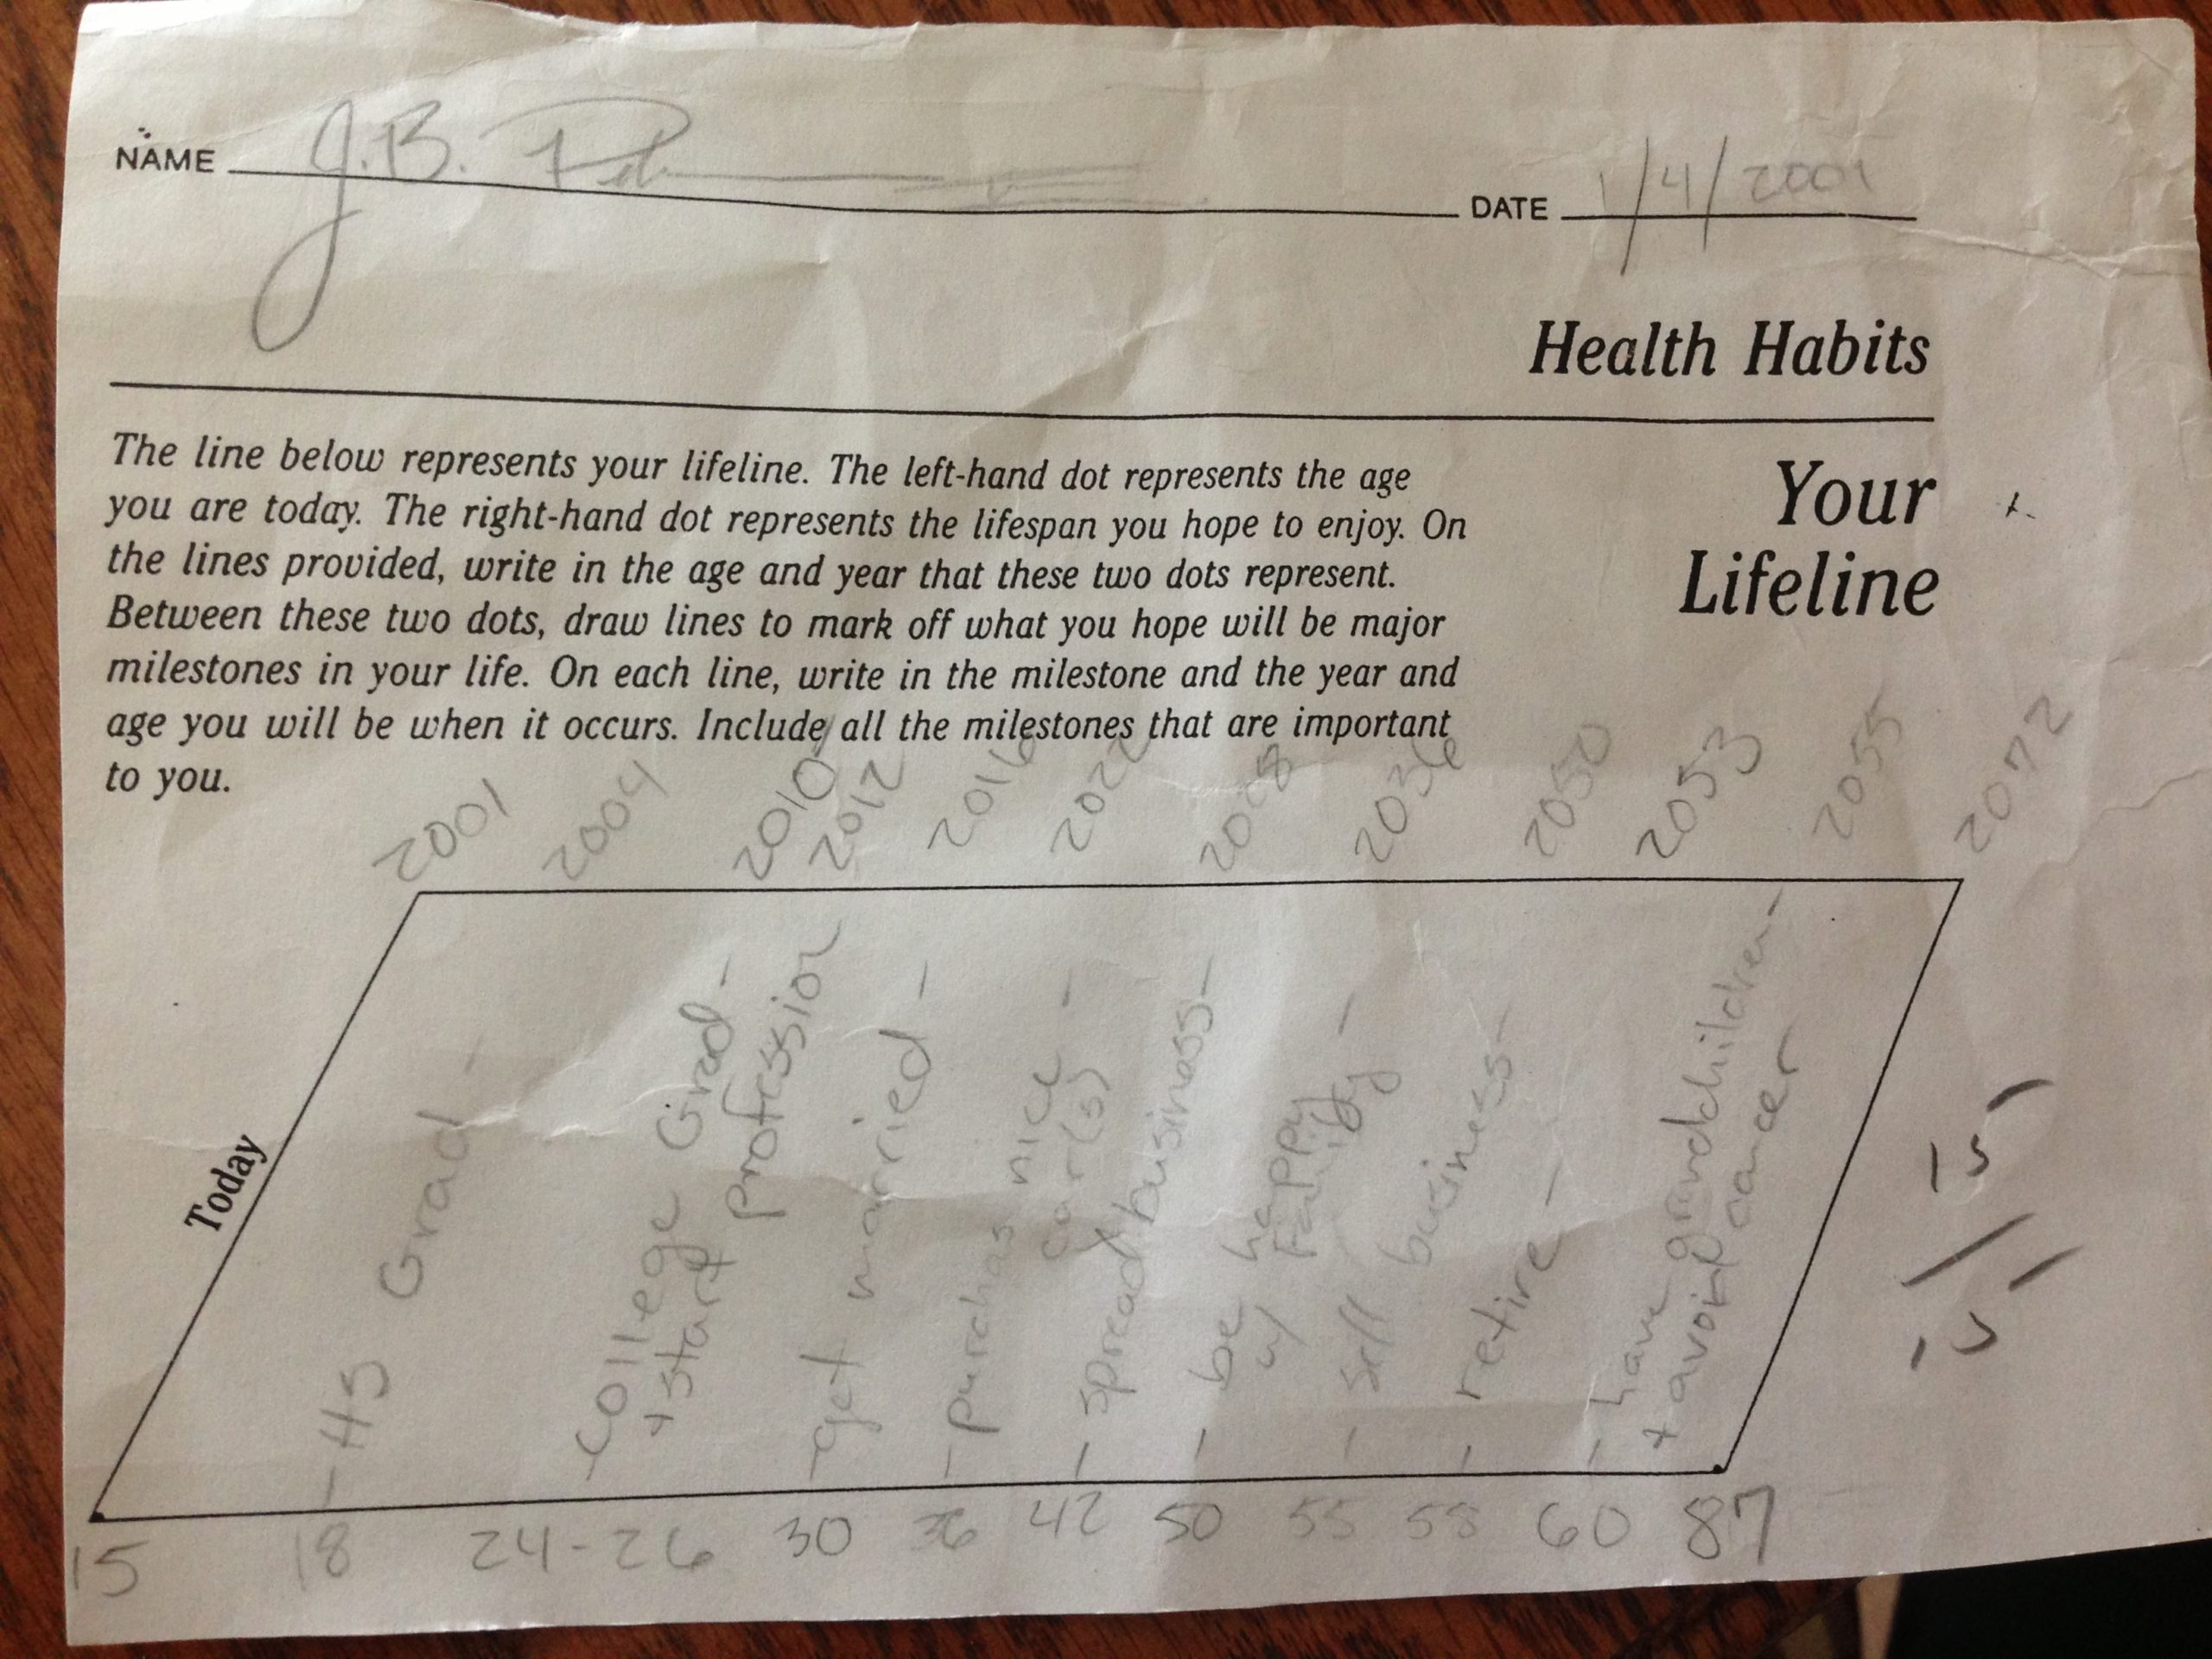 NAME J.B.
DATE 1/4/2001
Health Habits
The line below represents your lifeline. The left-hand dot represents the age
you are today. The right-hand dot represents the lifespan you hope to enjoy. On
the lines provided, write in the age and year that these two dots represent.
Between these two dots, draw lines to mark off what you hope will be major
milestones in your life. On each line, write in the milestone and the year and
age you will be when it occurs. Include all the milestones that are important
to you.
Your
Lifeline
2001 2004 2010/2012 2016 2022 2028 2036 2050 2053 2055 2072
Today
- HS Grad -
- College Grad -
+ start profession
- get married -
- purchas nice -
car(s)
- spread business -
- be happy
w/ family -
- sell business -
- retire -
- have grandchildren -
+ avoid cancer
15 18 24-26 30 36 42 50 55 58 60 87
15
15